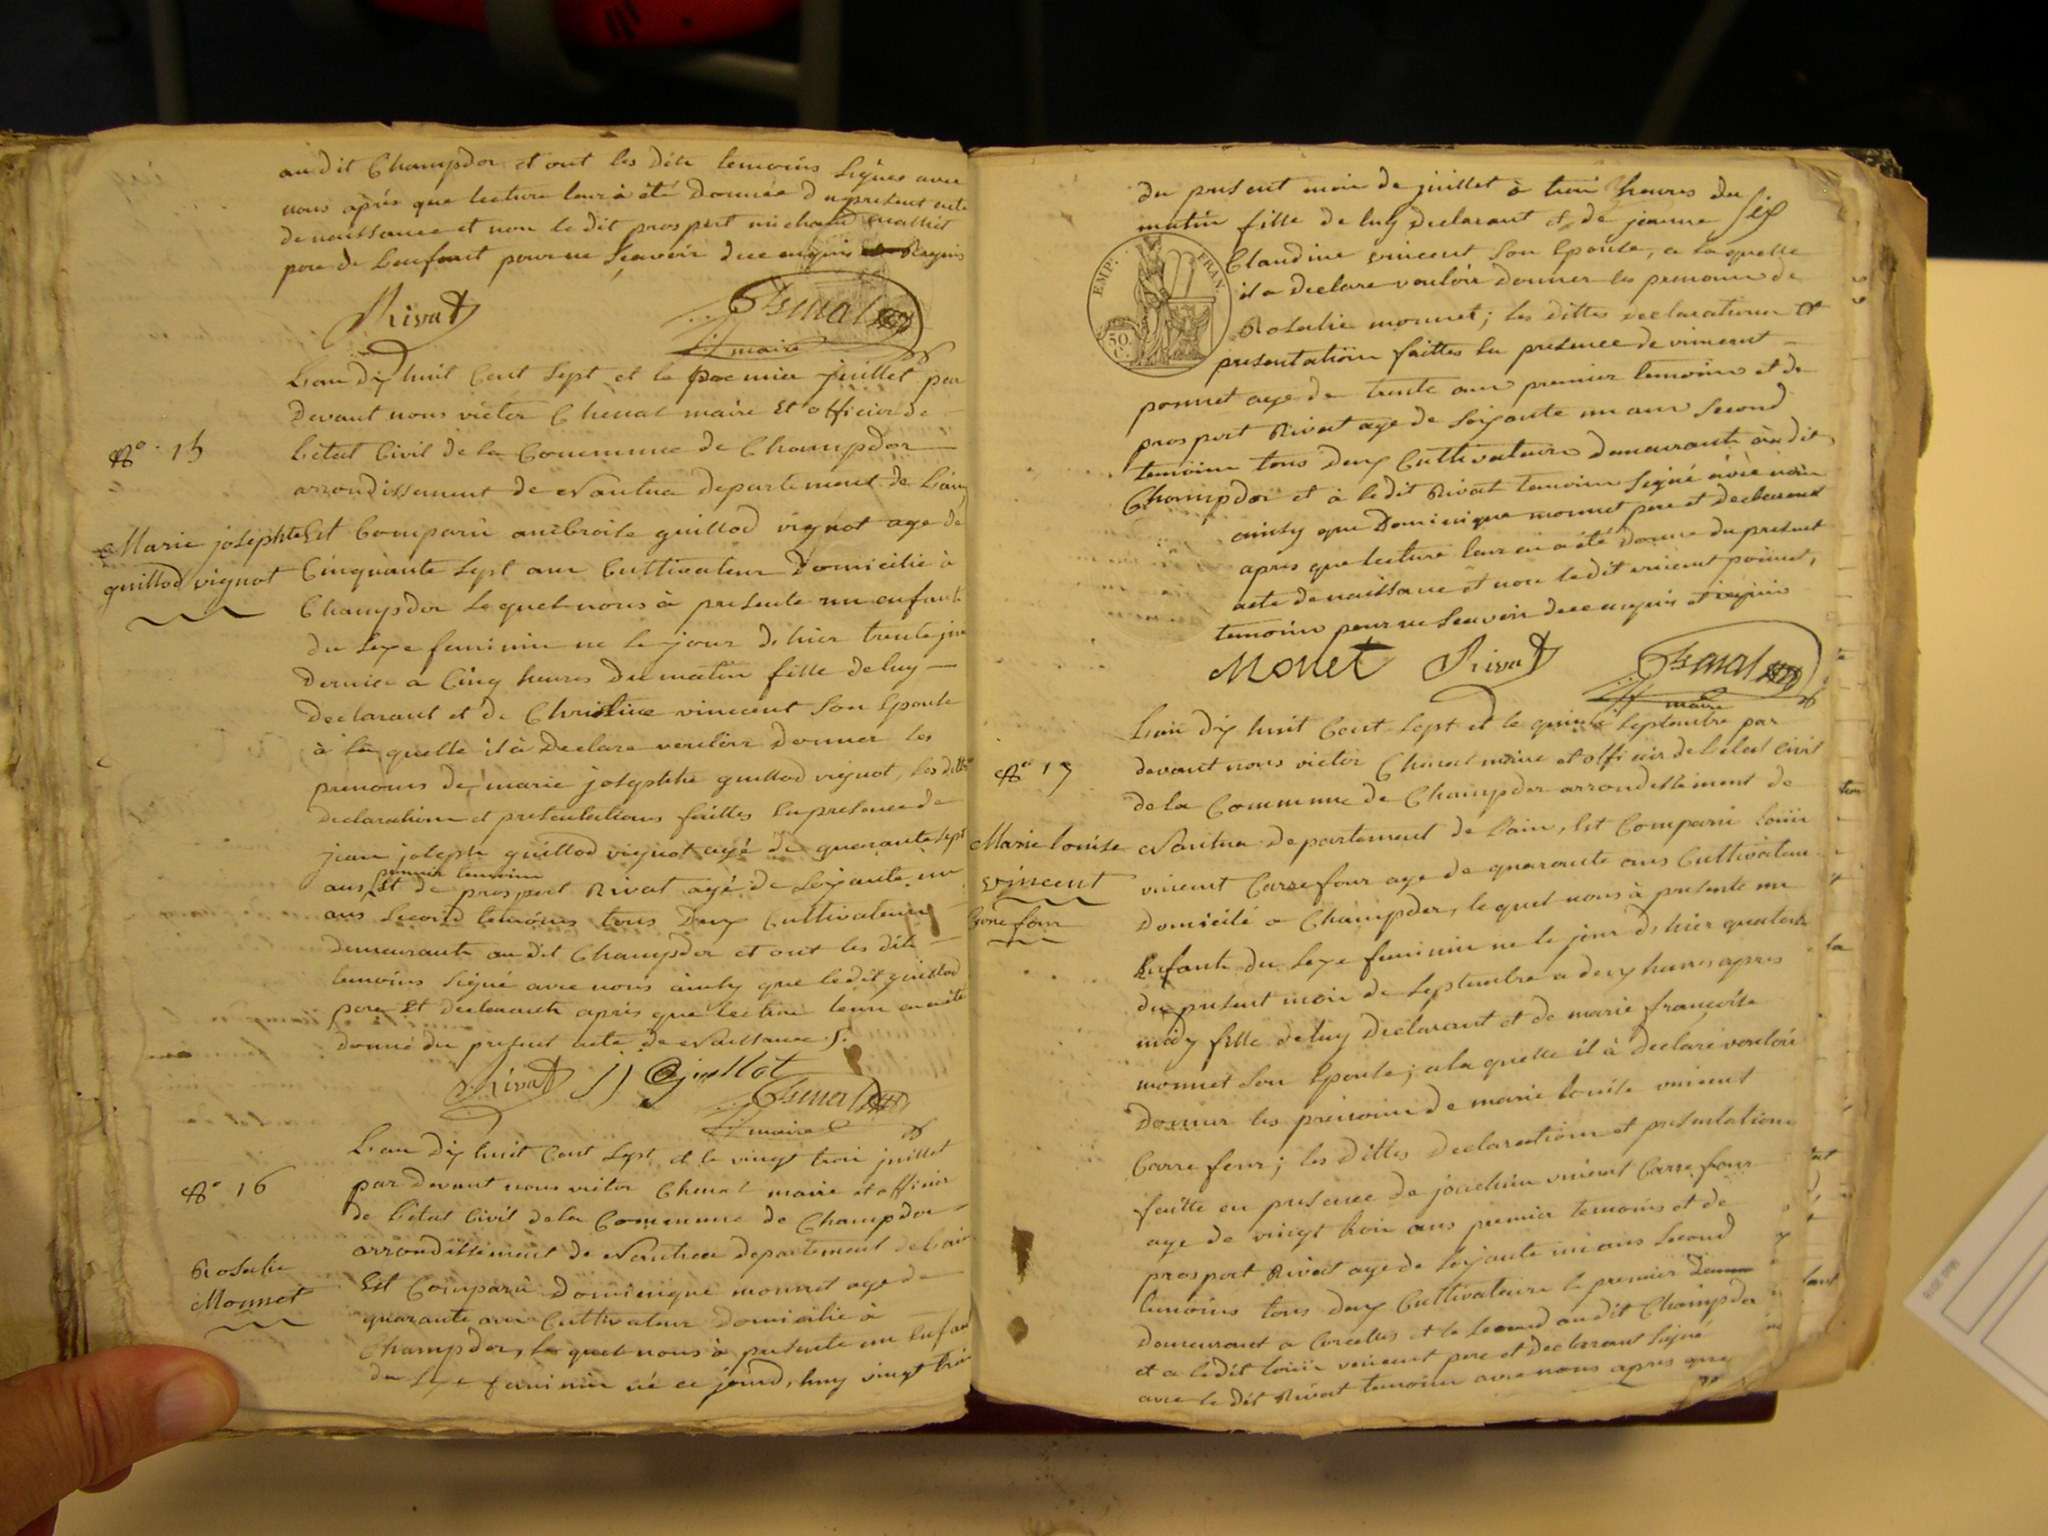 audit Champdor et ont les dits temoins Signés avec
nous aprés que lecture leur à été Donnée Du present acte
de naissance et non le dit prospert michaud maillet
pere de Lenfant pour ne Sçavoir de ce enquis Requis
Rivat
Chenal
maire
Lan dix huit Cent Sept et le premier juillet par
Devant nous victor Chenal maire Et officier de
Létat Civil de la Commune de Champdor
arrondissement de Nantua departement de Lain
No. 15
Marie josephte
guillod vignot
Est Comparu ambroise guillod vignot age de
Cinquante Sept ans Cultivateur Domicilié à
Champdor Le quel nous à presente un enfant
du Sexe feminin ne le jour d'hier trente juin
Dernier a Cinq heures Du matin fille de luy
declarant et de Christine vincent Son Epouse
à la quelle il à Declare vouloir Donner les
prenoms de marie josephte guillod vignot, les dittes
declarations et presentations faittes En presence de
jean joseph guillod vignot agé de quarante Sept
premier temoin
ans Et de prospert Rivat agé de Soixante un
ans Second temoins tous Deux Cultivateurs
demeurants audit Champdor et ont les dits
temoins Signé avec nous ainsy que ledit guillod
pere Et declarants aprés que lecture leur en a été
donné du present acte de Naissance
Rivat J J Guillot
Chenal
maire
No. 16
Rosalie
Monnet
Lan dix huit Cent Sept et le vingt trois juillet
par devant nous victor Chenal maire et officier
de Létat Civil de la Commune de Champdor
arrondissement de Nantua departement de Lain
Est Comparu Dominique monnet age de
quarante ans Cultivateur Domicilié à
Champdor, Le quel nous à presente un Enfant
du Sexe feminin né ce jourd'huy vingt trois
du present mois de juillet à trois heures du
matin fille de luy Declarant et de jeanne
Claudine vincent Son Epouse, a laquelle
il a Declare vouloir Donner les prenoms de
Rosalie monnet; les dittes declarations et
presentation faittes En presence de vincent
ponnet age de trente ans premier temoins et de
prospert Rivat age de Soixante un ans Second
temoins tous Deux Cultivateurs Demeurants audit
Champdor et à ledit Rivat temoins Signé avec nous
ainsy que Dominique monnet pere et declarant
aprés que lecture leur en a été Donne du present
acte de naissance et non ledit vincent ponnet,
temoins pour ne Sçavoir de ce enquis et requis
EMP. FRAN.
50 C.
Monet Rivat
Chenal
maire
No. 17
Marie Louise
vincent
Carrefour
Lan dix huit Cent Sept et le quinze Septembre par
devant nous victor Chenal maire et officier de Létat Civil
de la Commune de Champdor arrondissement de
Nantua departement de Lain, Est Comparu Louis
vincent Carrefour age de quarante ans Cultivateur
Domicilié a Champdor, le quel nous à presente un
Enfant du Sexe feminin ne le jour d'hier quatorze
du present mois de Septembre a deux heures apres
midy fille de luy Declarant et de marie françoise
monnet Son Epouse; a la quelle il à Declaré vouloir
Donner les prenoms de marie Louise vincent
Carrefour; les Dittes Declarations et presentations
faitte en presence de joachim vincent Carrefour
age de vingt trois ans premier temoins et de
prospert Rivat age de Soixante un ans Second
temoins tous deux Cultivateurs le premier
Demeurant a Corcelles et le Second audit Champdor
et a ledit Louis vincent pere et Declarant Signé
avec le dit Rivat temoins avec nous apres que